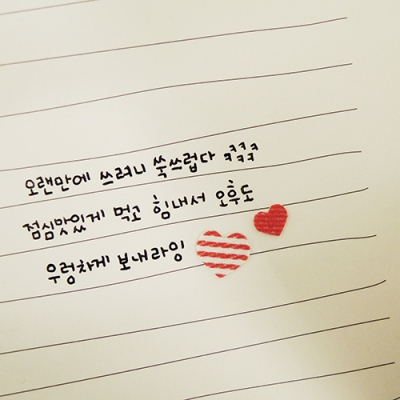 오랜만에 쓰려니 쑥쓰럽다 ㅋㅋㅋ
점심맛있게 먹고 힘내서 오후도
우렁차게 보내라잉